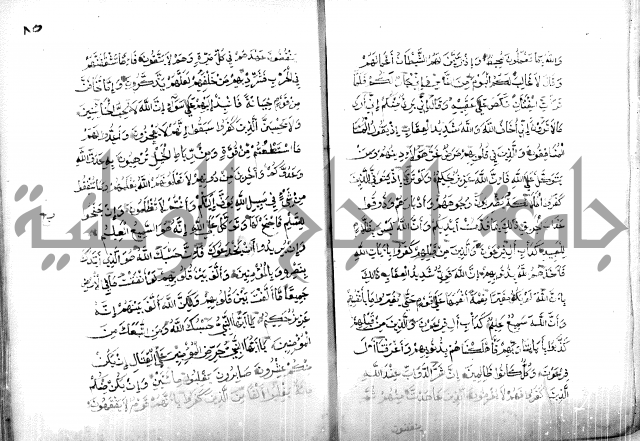 والله بما يعملون محيط واذ زين لهم الشيطان اعمالهم
وقال لا غالب لكم اليوم من الناس واني جار لكم فلما
ترآءت الفئتان نكص على عقبيه وقال اني برئ منكم اني ارى
ما لا ترون اني اخاف الله والله شديد العقاب اذ يقول
المنافقون والذين في قلوبهم مرض غر هؤلاء دينهم ومن
يتوكل على الله فان الله عزيز حكيم ولو ترى اذ يتوفى الذين
كفروا الملائكة يضربون وجوههم وادبارهم وذوقوا
عذاب الحريق ذلك بما قدمت ايديكم وان الله ليس بظلام
للعبيد كداب آل فرعون والذين من قبلهم كفروا بآيات الله
فاخذهم الله بذنوبهم ان الله قوي شديد العقاب ذلك
بان الله لم يك مغيرا نعمة انعمها على قوم حتى يغيروا ما بانفسهم
وان الله سميع عليم كداب آل فرعون والذين من قبلهم
كذبوا بآيات ربهم فاهلكناهم بذنوبهم واغرقنا آل
فرعون وكل كانوا ظالمين ان شر الدواب عند الله
الذين كفروا فهم لا يؤمنون الذين عاهدت منهم ثم
ينقضون
ينقضون عهدهم في كل مرة وهم لا يتقون فاما تثقفنهم
في الحرب فشرد بهم من خلفهم لعلهم يذكرون واما تخافن
من قوم خيانة فانبذ اليهم على سواء ان الله لا يحب الخائنين
ولا يحسبن الذين كفروا سبقوا انهم لا يعجزون واعدوا لهم
ما استطعتم من قوة ومن رباط الخيل ترهبون به عدو الله
وعدوكم وآخرين من دونهم لا تعلمونهم الله يعلمهم وما تنفقوا
من شئ في سبيل الله يوف اليكم وانتم لا تظلمون وان جنحوا
للسلم فاجنح لها وتوكل على الله انه هو السميع العليم
وان يريدوا ان يخدعوك فان حسبك الله هو الذي ايدك
بنصره وبالمؤمنين والف بين قلوبهم لو انفقت ما في الارض
جميعا ما الفت بين قلوبهم ولكن الله الف بينهم انه
عزيز حكيم يا ايها النبي حسبك الله ومن اتبعك من
المؤمنين يا ايها النبي حرض المؤمنين على القتال ان يكن
منكم عشرون صابرون يغلبوا مائتين وان يكن منكم
مائة يغلبوا الفا من الذين كفروا بانهم قوم لا يفقهون
جامعة النجاح الوطنية